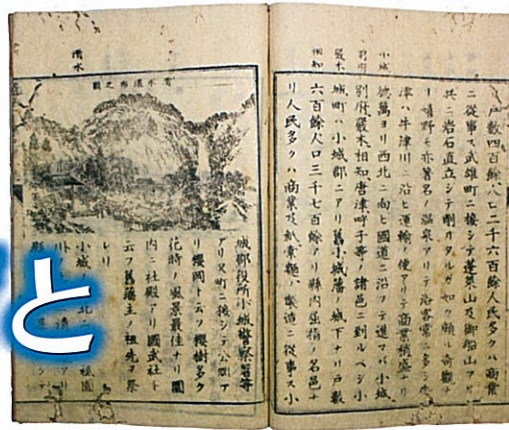 戸數四百餘人口二千六百餘人民多クハ商業
ニ從事ス武雄町ニ接シテ蓬萊山及御船山アリ
共ニ岩石直立シテ削リタルガ如ク頗ル奇觀ナ
リ嬉野モ亦著名ノ温泉アリテ浴客常ニ多シ牛
津ハ牛津川ニ沿ヒ運輸ノ便アリテ商業稍盛ナリ
小城
徳萬ヨリ西北ニ向ヒ國道ニ沿フテ進マバ小城
別府
別府嚴木相知唐津呼子等ノ諸邑ニ到ルベシ小
嚴木
城町ハ小城郡ニアリ舊小城藩ノ城下ナリ戸數
相知
六百餘人口三千七百餘アリ縣内屈指ノ名邑ナ
リ人民多クハ商業及紙素麺ノ製造ニ從事ス小
清水
清水瀑布之圖
城郡役所小城警察署等
アリ又町ニ接シテ公園ア
リ櫻岡ト云フ櫻樹多ク
花時ノ風景最佳ナリ園
内ニ社殿アリ國武社ト
云フ舊藩主ノ祖先ヲ祭
レリ
小城ノ北ニ祇園
と